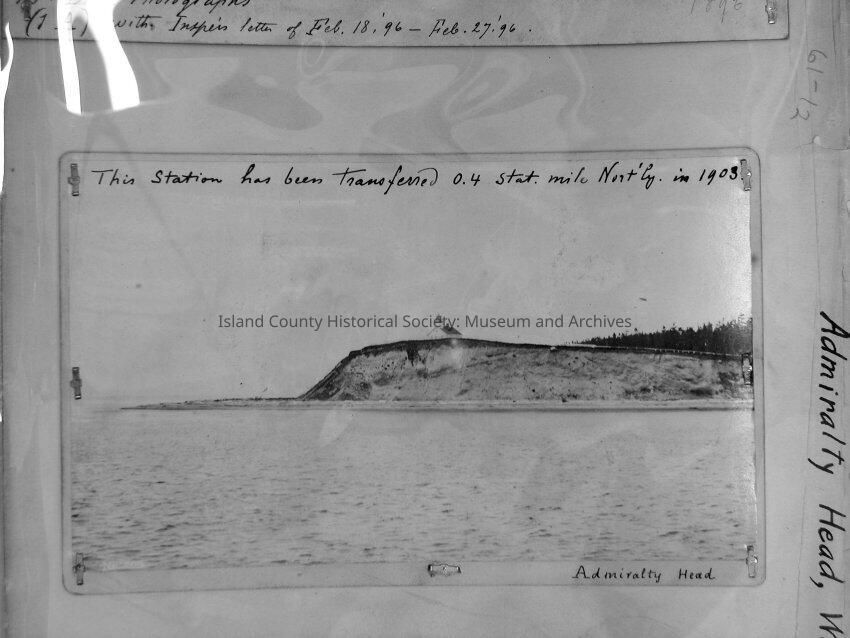 Photographs
with Insp'rs letter of Feb. 18, '96 – Feb. 27, '96.
1896
61-12
This Station has been transferred 0.4 stat. mile Nort'ly. in 1903.
Island County Historical Society: Museum and Archives
Admiralty Head
Admiralty Head, W